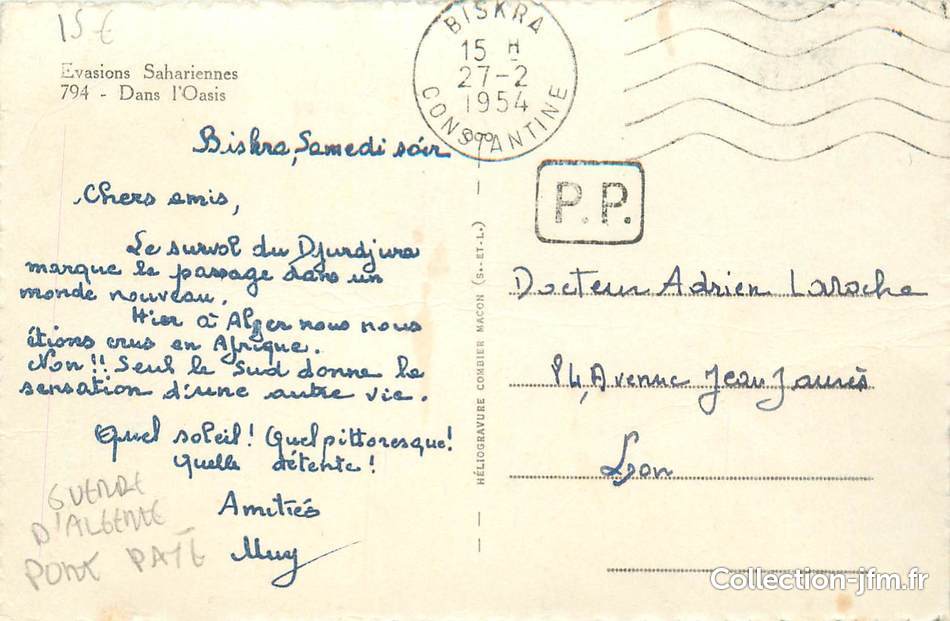 15€
Evasions Sahariennes
794 - Dans l'Oasis
BISKRA
15 H
27-2
1954
CONSTANTINE
P.P.
Biskra, Samedi soir
Chers amis,
Le survol du Djurdjura
marque le passage dans un
monde nouveau.
Hier à Alger nous nous
étions crus en Afrique.
Non!! Seul le Sud donne la
sensation d'une autre vie.
Quel soleil! Quel pittoresque!
Quelle détente!
Amitiés
GUERRE
D'ALGERIE
PORT PAYE
HÉLIOGRAVURE COMBIER MACON (S.-ET-L.)
Docteur Adrien Laroche
84, Avenue Jean Jaurès
Lyon
Collection-jfm.fr